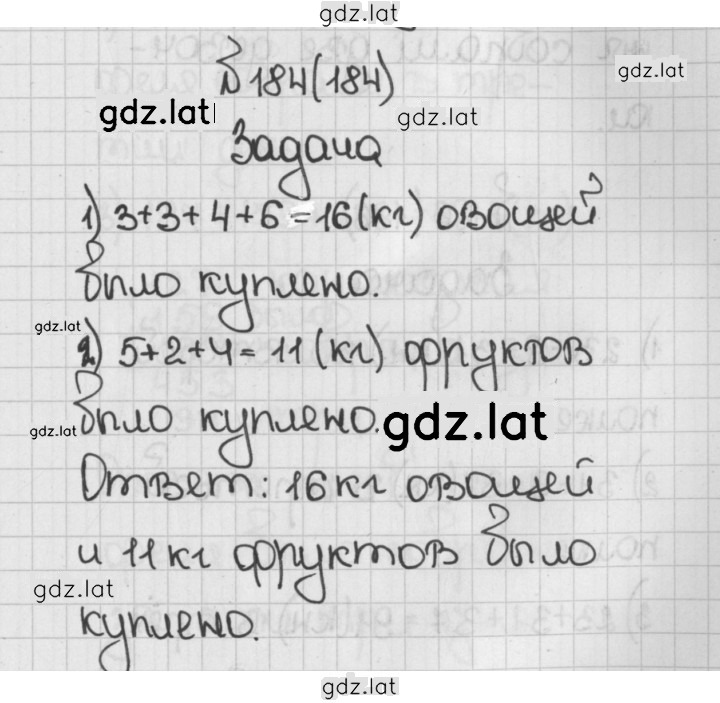 gdz.lat
№ 184(184)
gdz.lat
gdz.lat
gdz.lat
Задача
1) 3+3+4+6=16(кг) овощей
было куплено.
gdz.lat
2) 5+2+4=11(кг) фруктов
было куплено.
gdz.lat
gdz.lat
Ответ: 16 кг овощей
и 11 кг фруктов было
gdz.lat
куплено.
gdz.lat